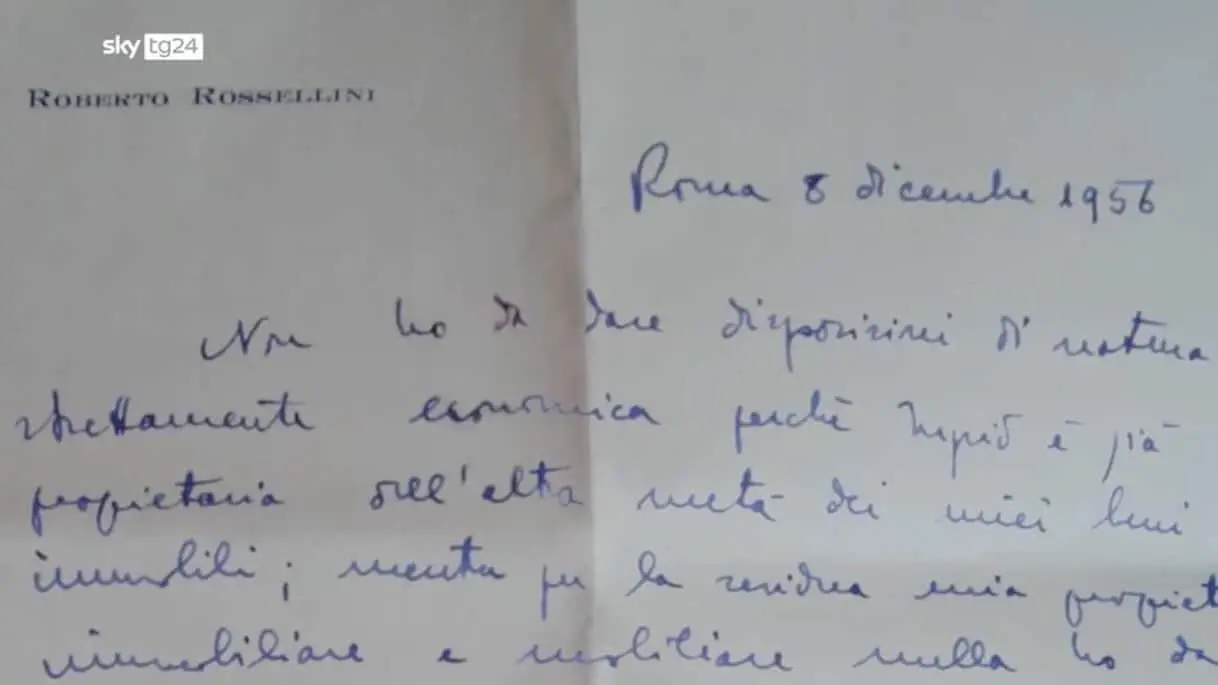 sky tg24
ROBERTO ROSSELLINI
Roma 8 dicembre 1956
Non ho da dare disposizioni di natura
strettamente economica perchè Ingrid è già
proprietaria dell'altra metà dei miei beni
immobili; mentre per la residua mia propriet
immobiliare e mobiliare nulla ho da